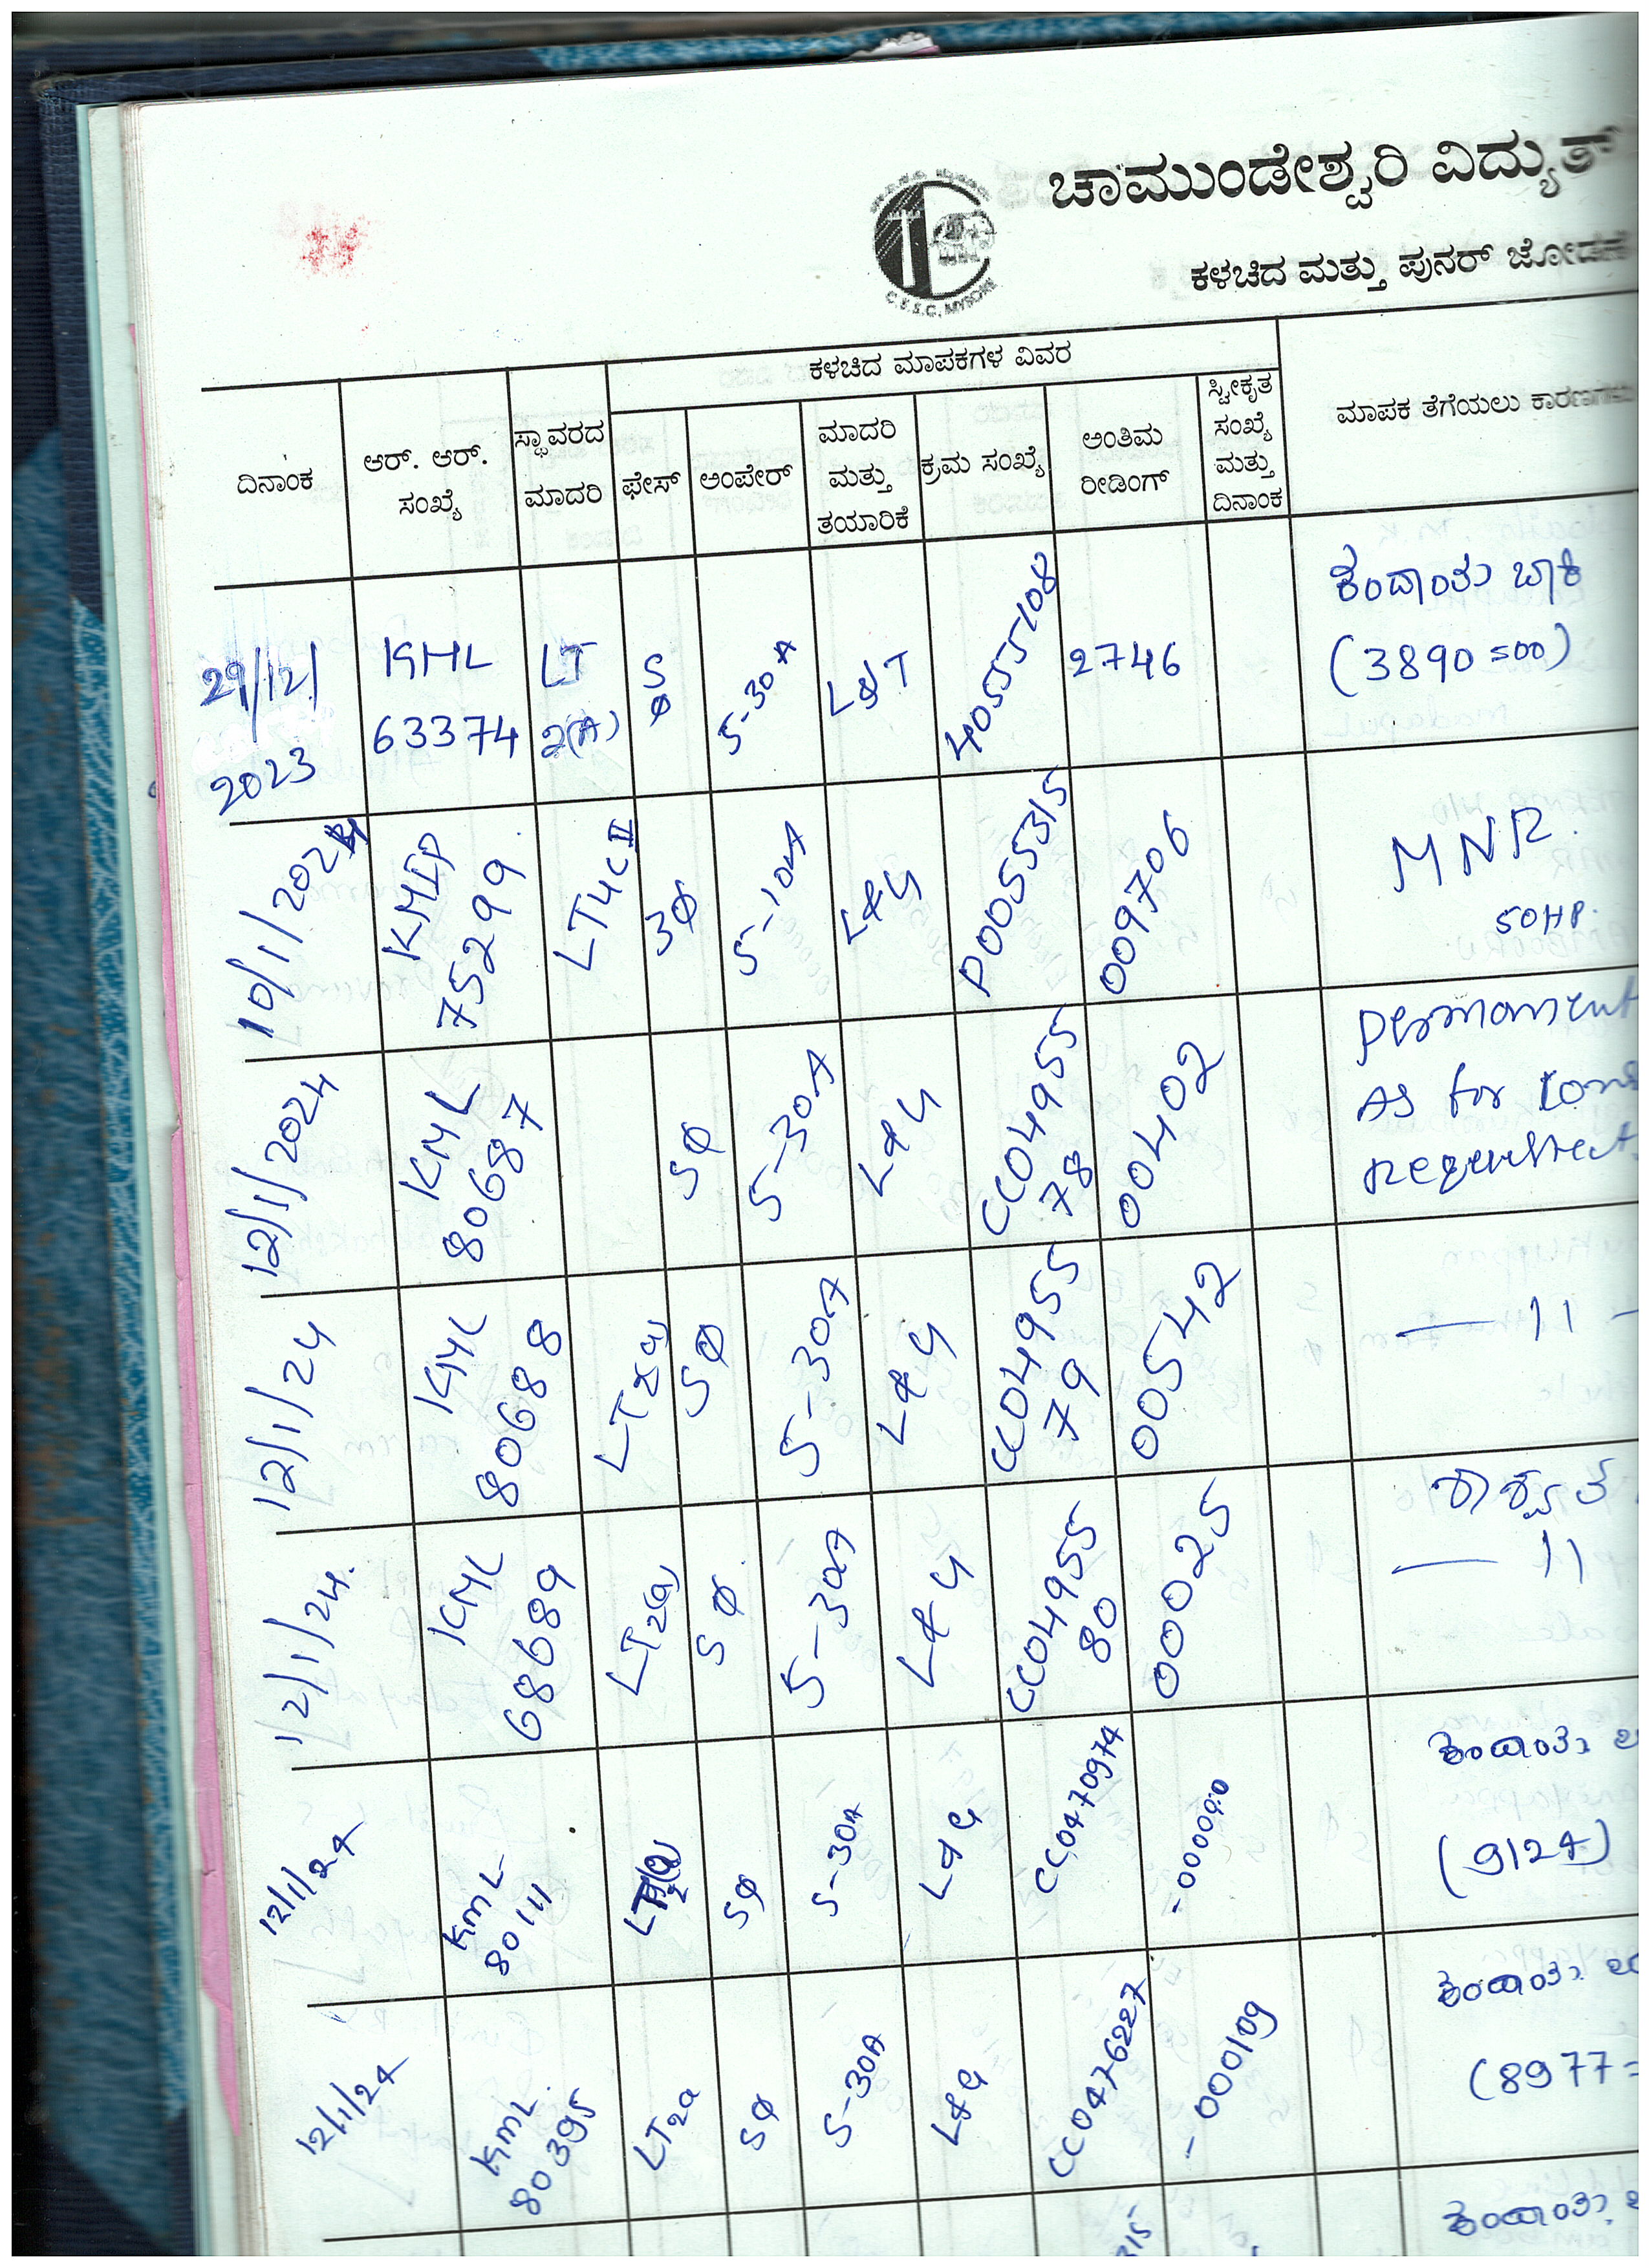 ಚಾಮುಂಡೇಶ್ವರಿ ವಿದ್ಯುತ್
C.E.S.C, MYSORE
ಕಳಚಿದ ಮತ್ತು ಪುನರ್ ಜೋಡಣೆ
ಕಳಚಿದ ಮಾಪಕಗಳ ವಿವರ
ದಿನಾಂಕ
ಆರ್. ಆರ್.
ಸಂಖ್ಯೆ
ಸ್ಥಾವರದ
ಮಾದರಿ
ಫೇಸ್
ಅಂಪೇರ್
ಮಾದರಿ
ಮತ್ತು
ತಯಾರಿಕೆ
ಕ್ರಮ ಸಂಖ್ಯೆ
ಅಂತಿಮ
ರೀಡಿಂಗ್
ಸ್ವೀಕೃತ
ಸಂಖ್ಯೆ
ಮತ್ತು
ದಿನಾಂಕ
ಮಾಪಕ ತೆಗೆಯಲು ಕಾರಣಗಳು
29/12/
2023
KML
63374
LT
2(A)
S
Ø
5-30A
L&T
40555108
2746
ಕಂದಾಯ ಬಾಕಿ
(3890=00)
10/1/2024
KMIP
75299
LT4C II
3Ø
5-10A
L&G
P0055315
009706
MNR
50HP.
12/1/2024
KML
80687
SØ
5-30A
L&G
CC04955
78
00402
permanent
As for
12/1/24
KML
80688
LT2(a)
SØ
5-30A
L&G
CC04955
79
00542
— 11 -
12/1/24.
KML
68689
LT2(a)
SØ
5-30A
L&G
CC04955
80
00025
ಶಾಶ್ವತ
— 11
12/1/24
KML
80111
LT2(a)
SØ
5-30A
L&G
CC0470974
ಕಂದಾಯ
(9124)
12/1/24
KML
80395
LT2a
SØ
5-30A
L&G
CC0476227
- 000109
ಕಂದಾಯ
(8977=
ಕಂದಾಯ